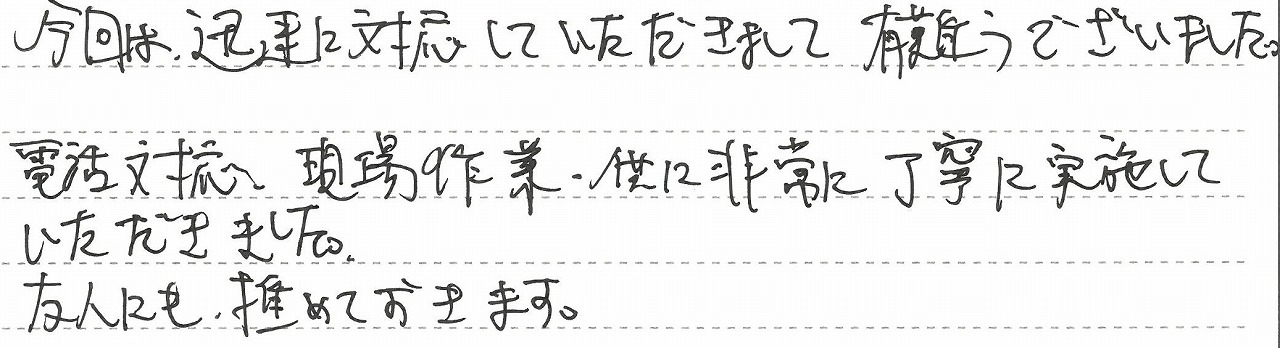 今回は、迅速に対応していただきまして有難うでございました。
電話対応、現場作業、供に非常に丁寧に実施して
いただきました。
友人にも、推めておきます。